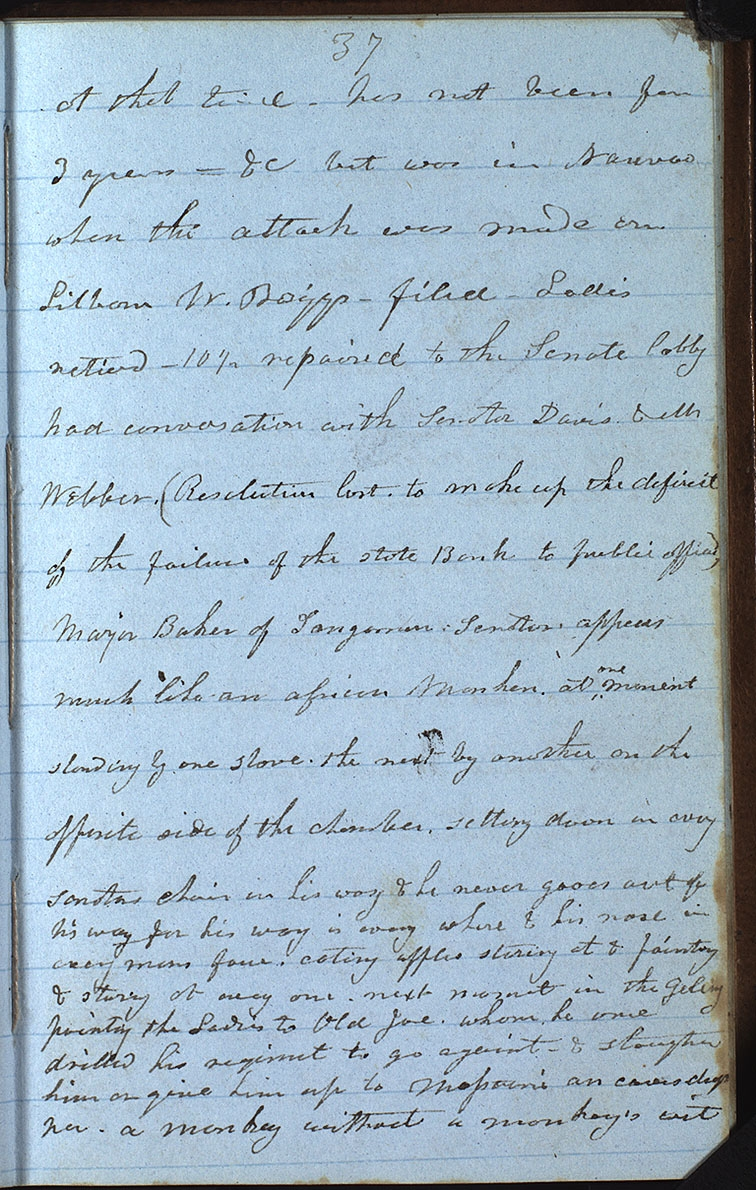 37
at that time - has not been for
3 years - &c but was in Nauvoo
when the attack was made on
Lilburn W. Boggs - filed - Ladies
retired - 10 1/2 repaired to the Senate lobby
had conversation with Senator Davis. & Mr
Webber. (Resolution lost. to make up the deficit
of the failure of the state Bank to public officers)
Major Baker of Sangamon. Senator. appears
much like an african Monkey. at one moment
standing by one stove. the next by another on the
opposite side of the chamber. setting down in every
senators chair in his way & he never goes out of
his way for his way is every where & his nose in
every mans face. eating apples staring at & pointing
& staring at every one. next moment in the Gallery
pointing the Ladies to Old Joe. whom he once
drilled his regiment to go against - & slaughter
him or give him up to Missouri an eavesdrop
per. a monkey without a monkey's wit